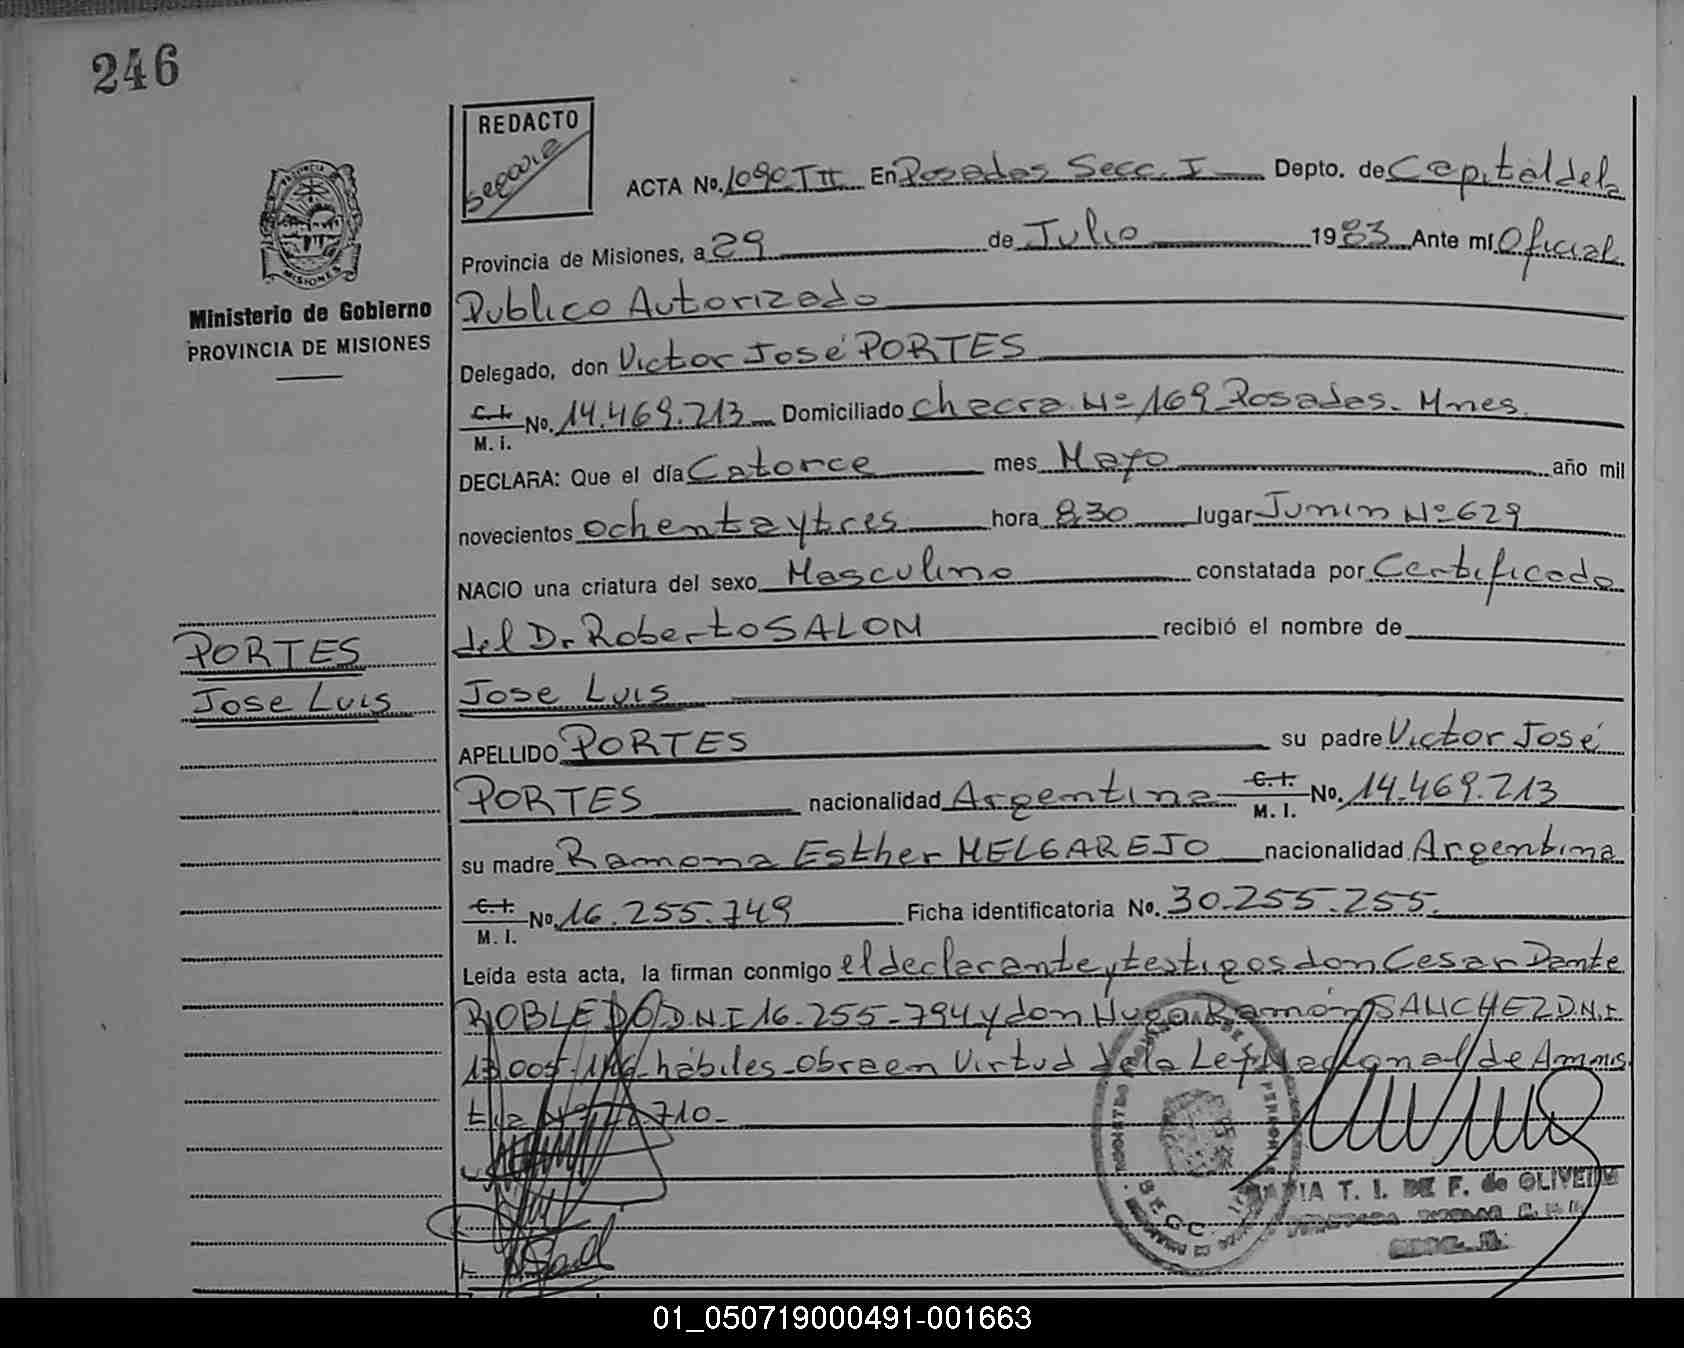 246
REDACTO
ACTA No. 1090 T II En Posadas Secc. I Depto. de Capital de la
Provincia de Misiones, a 29 de Julio 1983 Ante mí Oficial
Publico Autorizado
Ministerio de Gobierno
PROVINCIA DE MISIONES
Delegado, don Victor José PORTES
C.I. M.I. No. 14.469.213 Domiciliado chacra Nº 169 Posadas. Mnes.
DECLARA: Que el día Catorce mes Mayo año mil
novecientos ochenta y tres hora 8,30 lugar Junin Nº 629
NACIO una criatura del sexo Masculino constatada por Certificado
del Dr Roberto SALOM recibió el nombre de
PORTES
Jose Luis
Jose Luis
APELLIDO PORTES su padre Victor José
PORTES nacionalidad Argentina C.I. M.I. No. 14.469.213
su madre Ramona Esther MELGAREJO nacionalidad Argentina
C.I. M.I. No. 16.255.749 Ficha identificatoria No. 30.255.255.
Leída esta acta, la firman conmigo el declarante y testigos don Cesar Dante
ROBLEDO D.N.I 16.255.794 y don Hugo Ramón SANCHEZ D.N.I
hábiles. obra en Virtud de la Ley Nacional de Amnis
tia 710.
T. I. DE F. de OLIVEIRA
01_050719000491-001663